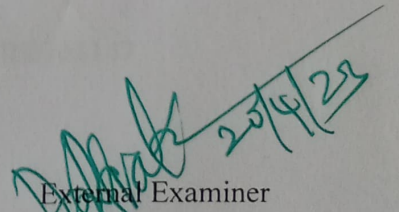 20/4/23
External Examiner